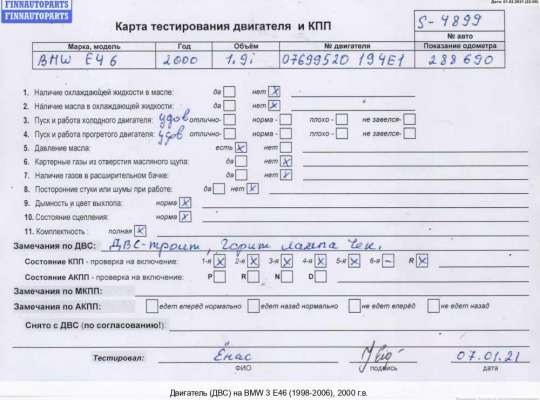 FINNAUTOPARTS
FINNAUTOPARTS
Карта тестирования двигателя и КПП
S-4899
№ авто
Марка, модель Год Объём № двигателя Показание одометра
BMW E46 2000 1.9i 07699520 194E1 288690
1. Наличие охлаждающей жидкости в масле: да нет x
2. Наличие масла в охлаждающей жидкости: да нет x
3. Пуск и работа холодного двигателя: удов отлично- норма - плохо - не завелся-
4. Пуск и работа прогретого двигателя: удов отлично- норма - плохо - не завелся-
5. Давление масла: есть x нет
6. Картерные газы из отверстия масляного щупа: да нет x
7. Наличие газов в расширительном бачке: да нет x
8. Посторонние стуки или шумы при работе: да нет x
9. Дымность и цвет выхлопа: норма x
10. Состояние сцепления: норма x
11. Комплектность: полная x
Замечания по ДВС: ДВС-троит, Горит лампа чек.
Состояние КПП - проверка на включение: 1-я x 2-я x 3-я x 4-я x 5-я x 6-я – R x
Состояние АКПП - проверка на включение: P R N D
Замечания по МКПП:
Замечания по АКПП: едет вперёд нормально едет назад нормально не едет вперёд не едет назад
Снято с ДВС (по согласованию!):
Тестировал: Ёнас 07.01.21
ФИО подпись дата
Двигатель (ДВС) на BMW 3 E46 (1998-2006), 2000 г.в.